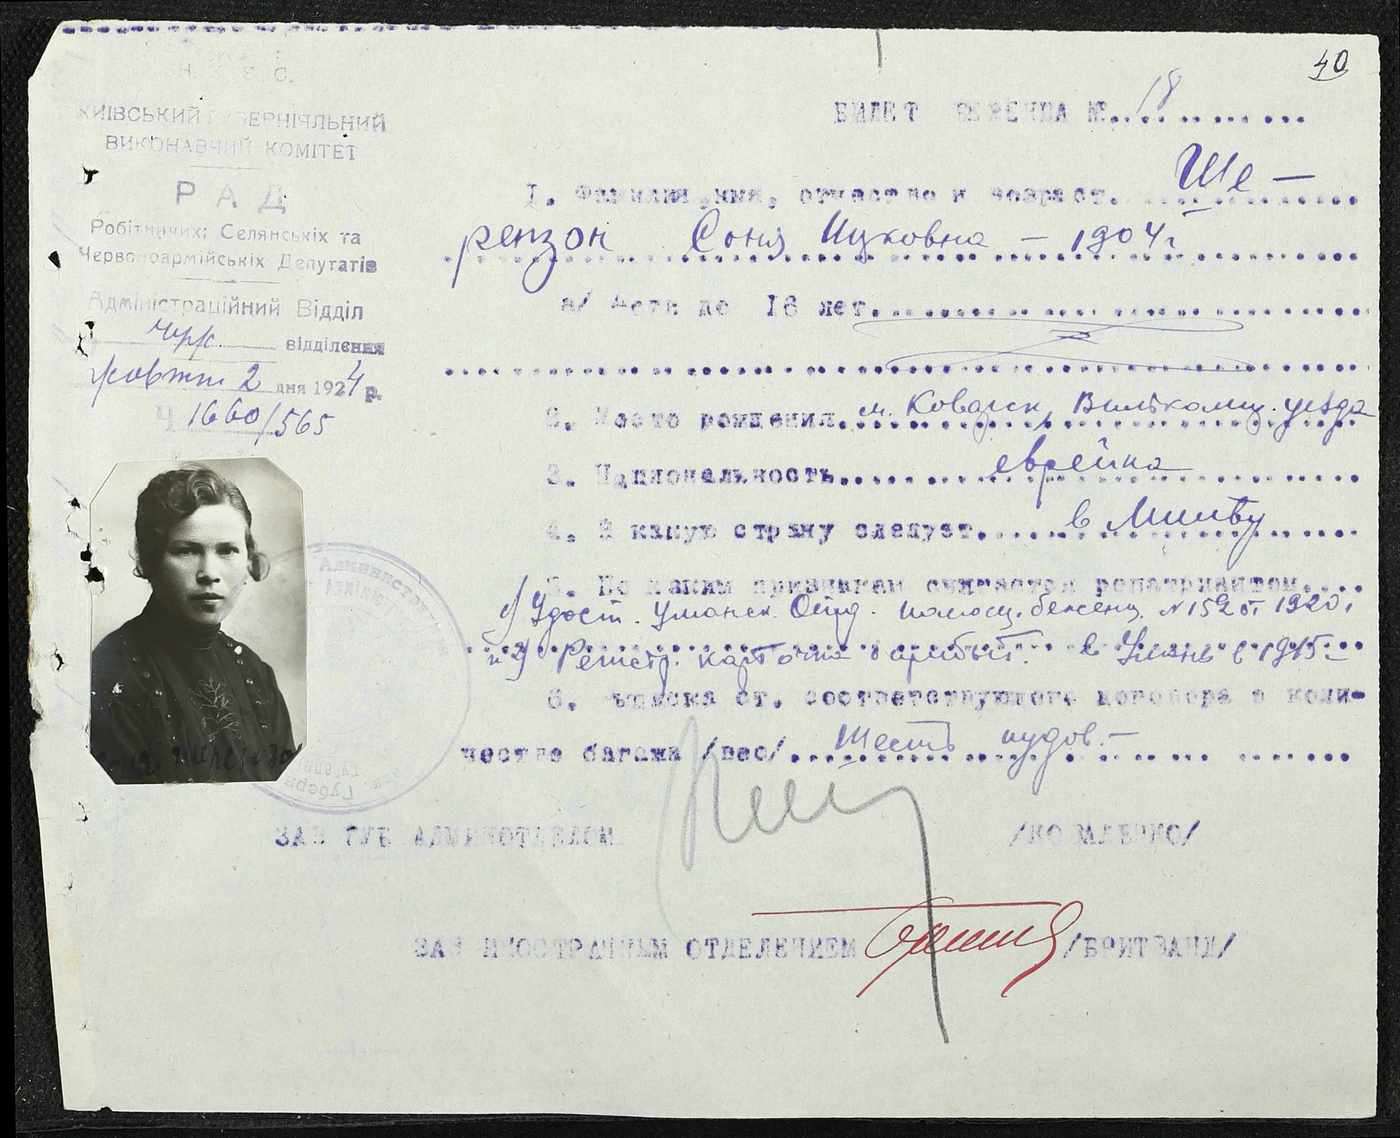 40
КИЇВСЬКИЙ ГУБЕРНІЯЛЬНИЙ
ВИКОНАВЧИЙ КОМІТЕТ
РАД
Робітничих, Селянськіх та
Червоноармійськіх Депутатів
Адміністраційний Відділ
відділення
жовтня 2 дня 1924 р.
Ч 1660/565
БИЛЕТ БЕЖЕНЦА №. 18
I. Фамилия, имя, отчество и возраст. Ше-
рензон Соня Ицковна - 1904 г
а/ Дети до 16 лет.
2. Место рождения. м. Коварск, Вилькомир. уезда
3. Национальность. еврейка
4. В какую страну следует. в Литву
5. По каким признакам считается репатриантом.
1) Удост. Уманск. Отд. помощ. бежен. №152 от 1920 г
и 2) Регистр. карточка о прибыт. в Умань в 1915-
6. ст. соответствующего договора о коли-
честве багажа /вес/. Шесть пудов.-
ЗАВ ГУБ АДМИНОТДЕЛОМ /КОВАЛЕНКО/
ЗАВ ИНОСТРАННЫМ ОТДЕЛЕНИЕМ /БРИТВАНД/